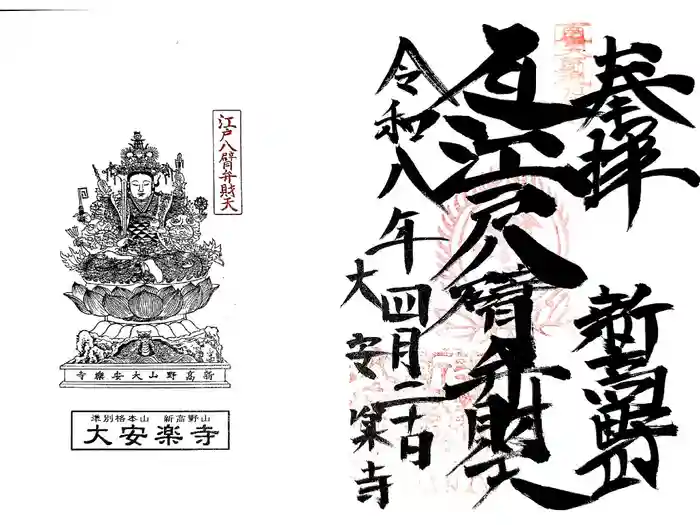 奉拝
新高野山
江戸八臂弁財天
令和八年四月二十日
大安楽寺
江戸八臂弁財天
新高野山大安楽寺
準別格本山 新高野山
大安楽寺